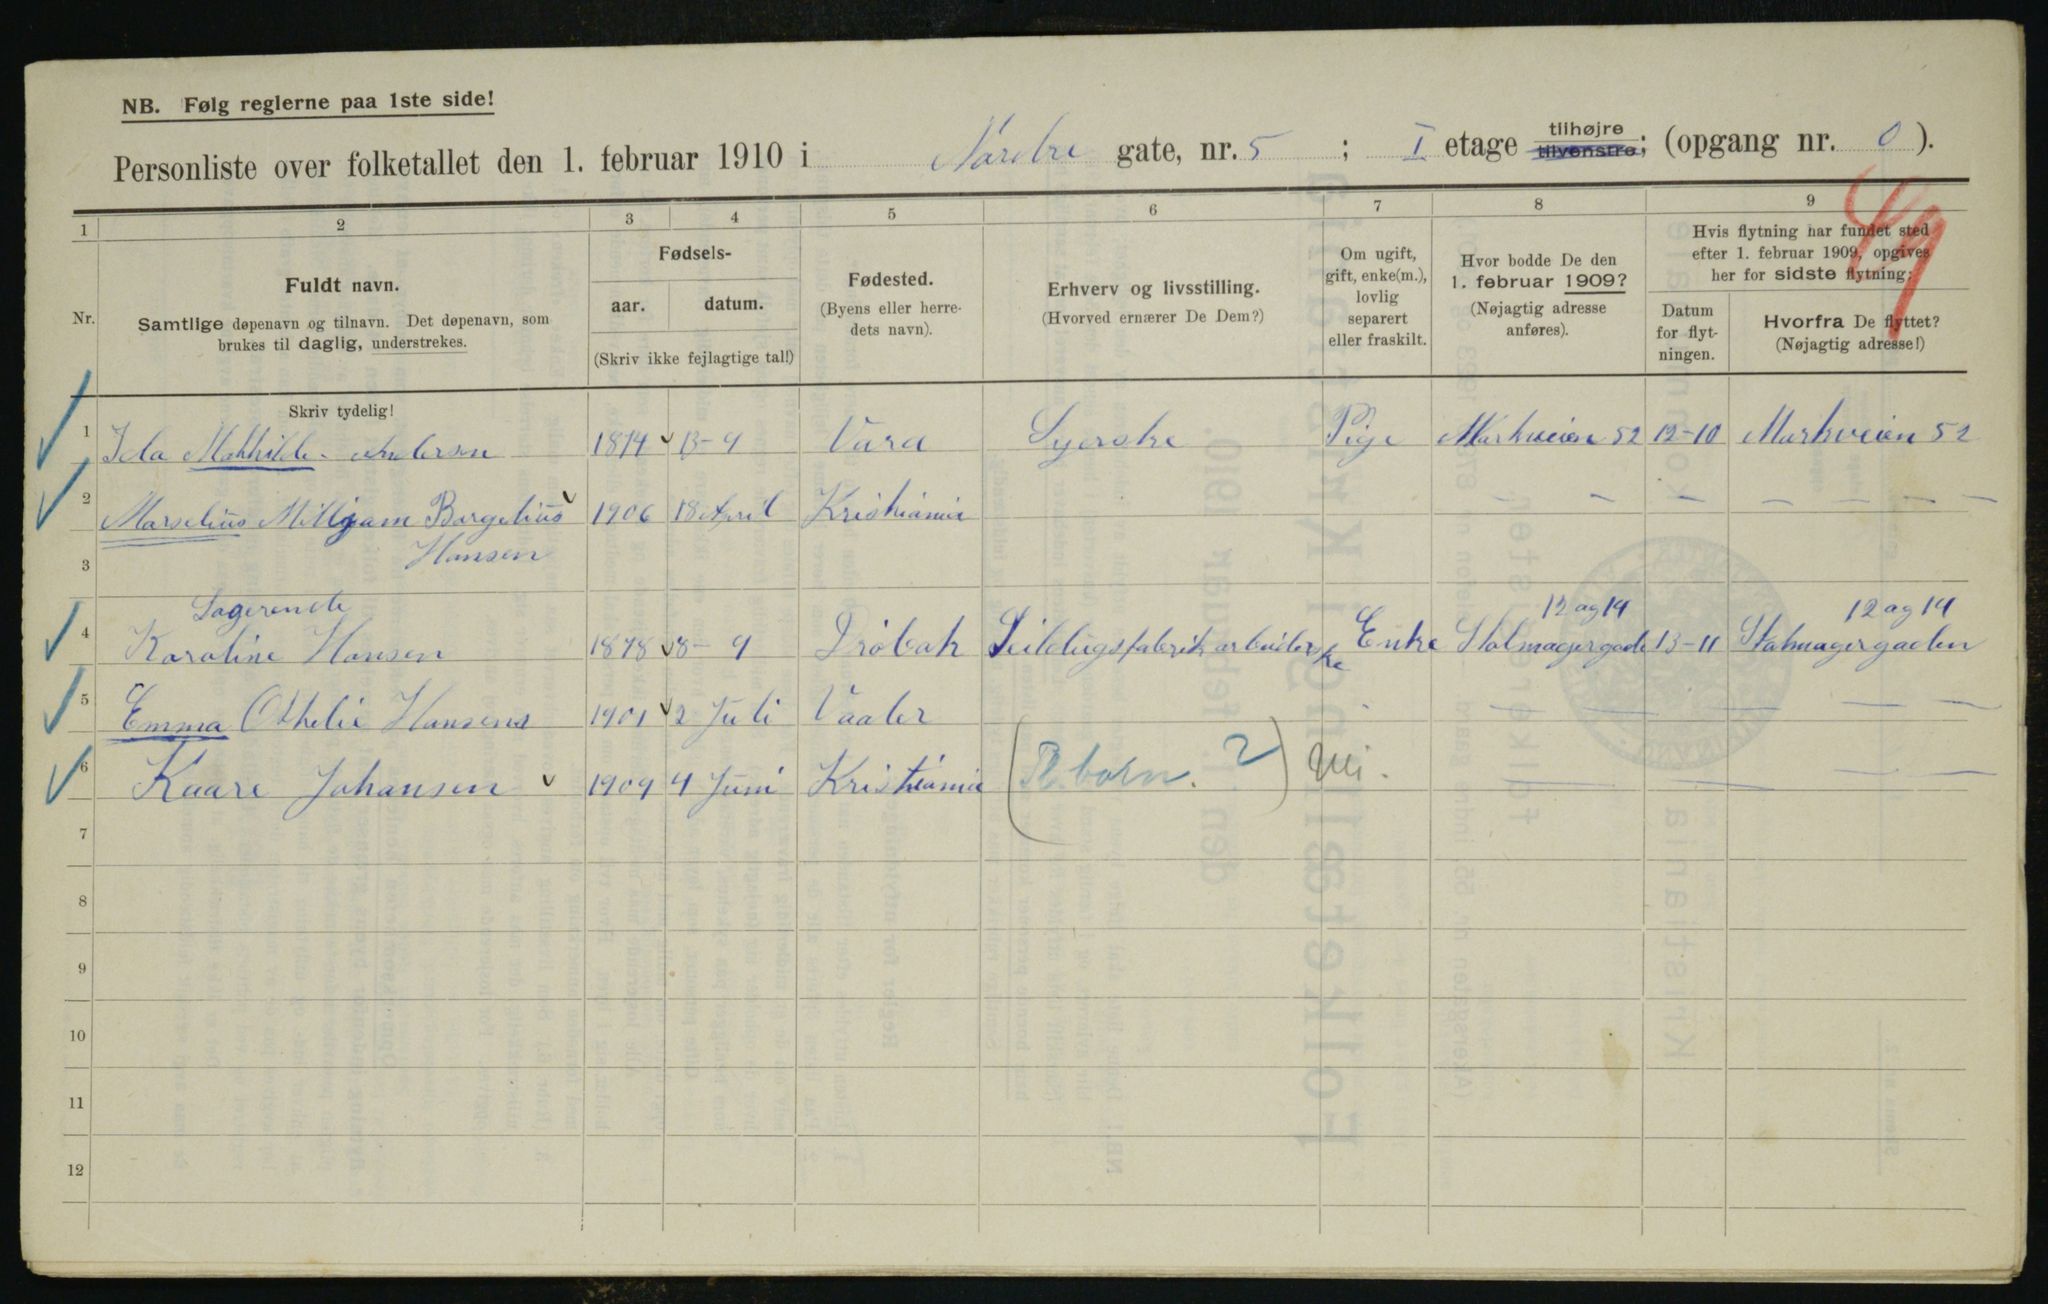 NB. Følg reglerne paa 1ste side!
Personliste over folketallet den 1. februar 1910 i Nordre gate, nr. 5 ; I etage tilhøjre tilvenstre; (opgang nr. 0 ).
1 2 3 4 5 6 7 8 9
Nr.
Fuldt navn.
Samtlige døpenavn og tilnavn. Det døpenavn, som
brukes til daglig, understrekes.
Fødsels-
aar. datum.
(Skriv ikke fejlagtige tal!)
Fødested.
(Byens eller herre-
dets navn).
Erhverv og livsstilling.
(Hvorved ernærer De Dem?)
Om ugift,
gift, enke(m.),
lovlig
separert
eller fraskilt.
Hvor bodde De den
1. februar 1909?
(Nøjagtig adresse
anføres).
Hvis flytning har fundet sted
efter 1. februar 1909, opgives
her for sidste flytning:
Datum
for flyt-
ningen.
Hvorfra De flyttet?
(Nøjagtig adresse!)
Skriv tydelig!
1 Ida Mathilde Andersen 1874 13-9 Vard Syerske Pige Markveien 52 12-10 Markveien 52
2 Marselius Milljam Borgelius 1906 18 April Kristiania — — — — — — —
3 Hansen
Logerende 12 og 14 12 og 14
4 Karoline Hansen 1878 8-9 Drøbak Seildugsfabrik arbeiderske Enke Stolmagergade 13-11 Stolmagergaden
5 Emma Othelie Hansen 1901 2 Juli Vaaler — — — — —
6 Kaare Johansen 1909 4 Juni Kristiania (Pl barn. ?) — — — — —
7
8
9
10
11
12